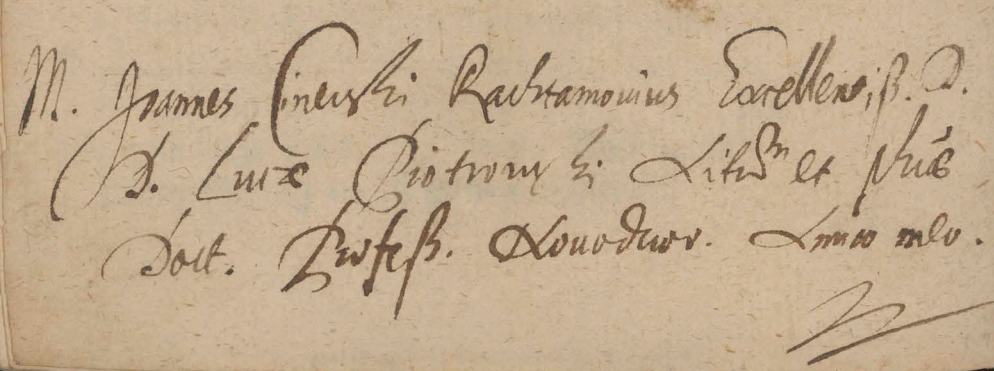 M. Joannes Cinerski Rachtamovius Excellentiß. D.
D. Lucæ Piotrowski Litũm et phiæ
Doct. Profeß. Novodvor. Amico meo.